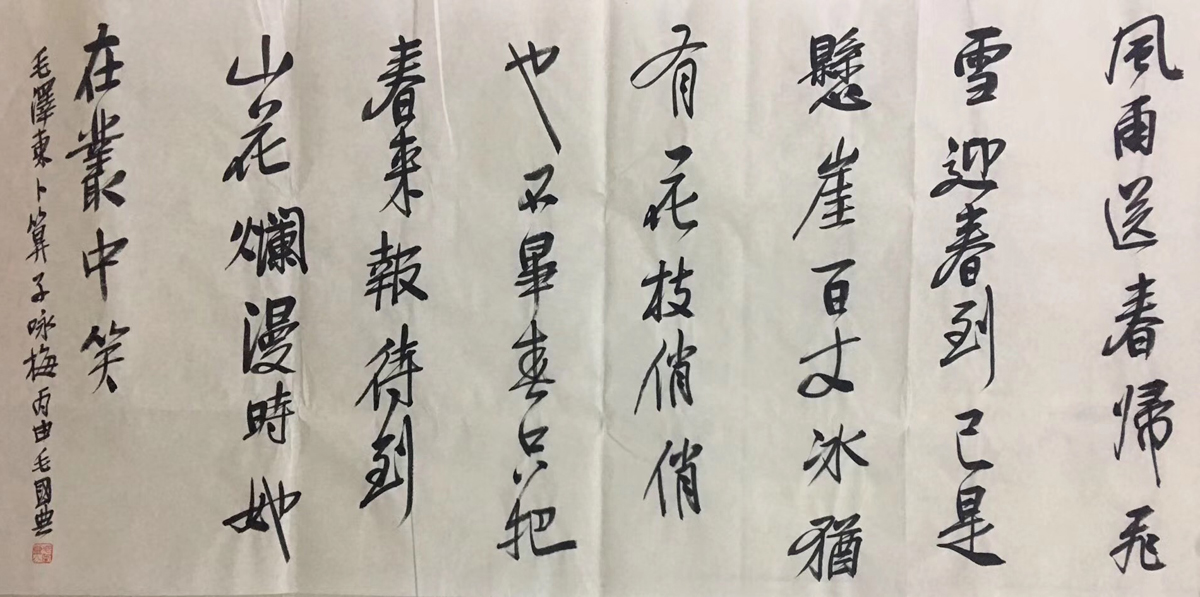 風雨送春歸飛
雪迎春到已是
懸崖百丈冰猶
有花枝俏俏
也不畢春只把
春來報待到
山花爛漫時她
在叢中笑
毛澤東卜算子咏梅丙申毛國典